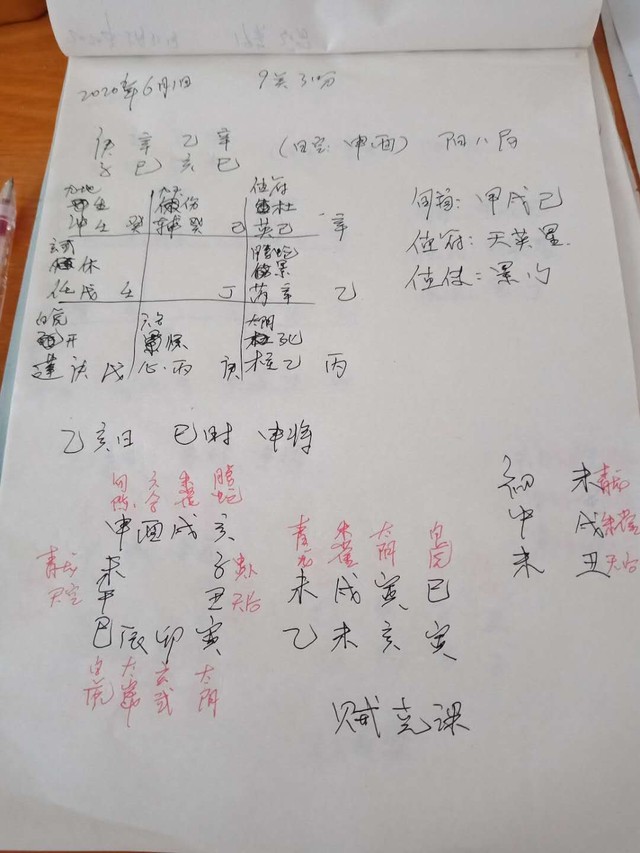 2020年6月1日 9点31分
庚 辛 乙 辛
子 巳 亥 巳
(日空:申酉) 阳八局
九地 九天 值符
生 伤 杜
冲 壬 癸 辅 癸 己 英 己 辛
旬首:甲戌己
值符:天英星
值使:景门
玄武 螣蛇
休 景
任 戊 壬 丁 芮 辛 乙
白虎 六合 太阴
开 惊 死
蓬 戊 心 丙 庚 柱 乙 丙
乙亥日 巳时 申将
勾陈 六合 朱雀 螣蛇
申 酉 戌 亥
青龙 未 子 贵人
天空 午 丑 天后
巳 辰 卯 寅
白虎 太常 玄武 太阴
青龙 朱雀 太阴 白虎
未 戌 寅 巳
乙 未 亥 寅
初 未 青龙
中 戌 朱雀
末 丑 天后
贼克课